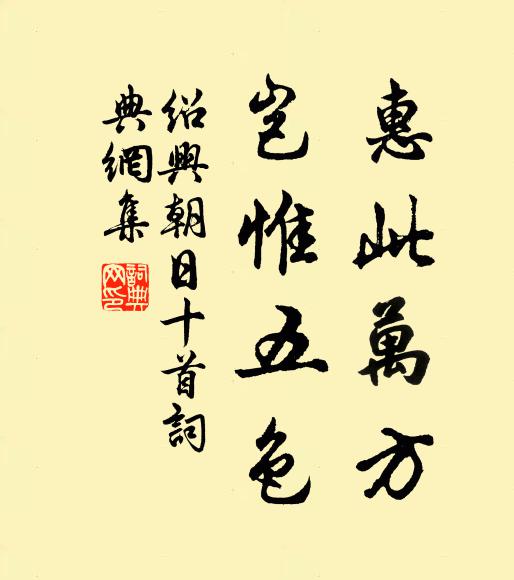 惠此萬方
豈惟五色
紹興朝日十首詞
典網集
詞典網印